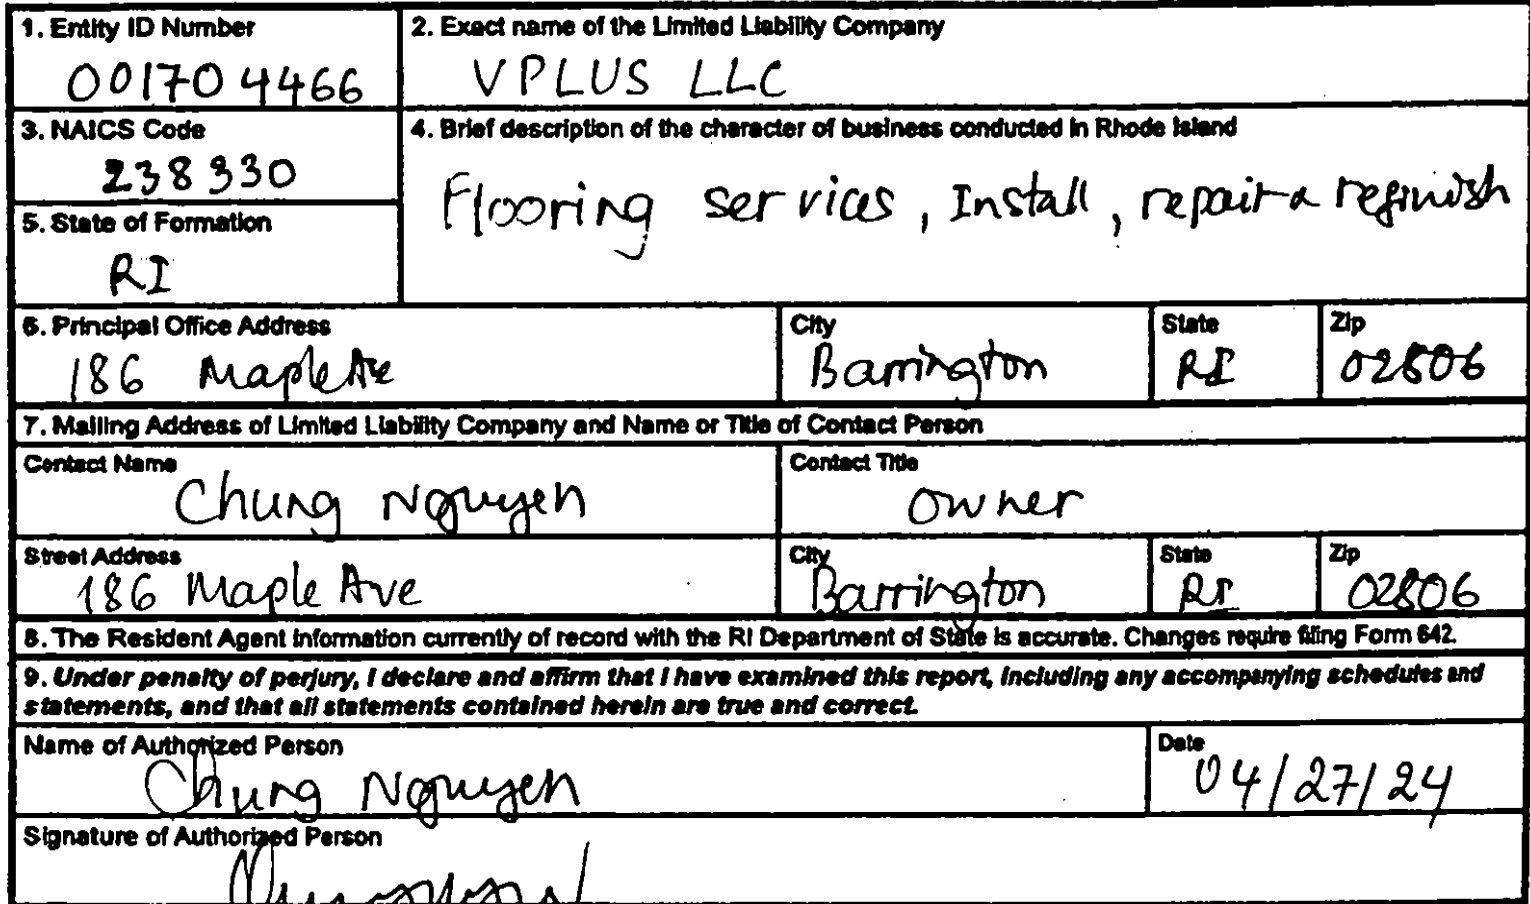 1. Entity ID Number
001704466
2. Exact name of the Limited Liability Company
VPLUS LLC
3. NAICS Code
238330
4. Brief description of the character of business conducted in Rhode Island
Flooring services, Install, repair & refinish
5. State of Formation
RI
6. Principal Office Address
186 Maple Ave
City
Barrington
State
RI
Zip
02806
7. Mailing Address of Limited Liability Company and Name or Title of Contact Person
Contact Name
Chung Nguyen
Contact Title
owner
Street Address
186 Maple Ave
City
Barrington
State
RI
Zip
02806
8. The Resident Agent information currently of record with the RI Department of State is accurate. Changes require filing Form 642.
9. Under penalty of perjury, I declare and affirm that I have examined this report, including any accompanying schedules and
statements, and that all statements contained herein are true and correct.
Name of Authorized Person
Chung Nguyen
Date
04/27/24
Signature of Authorized Person